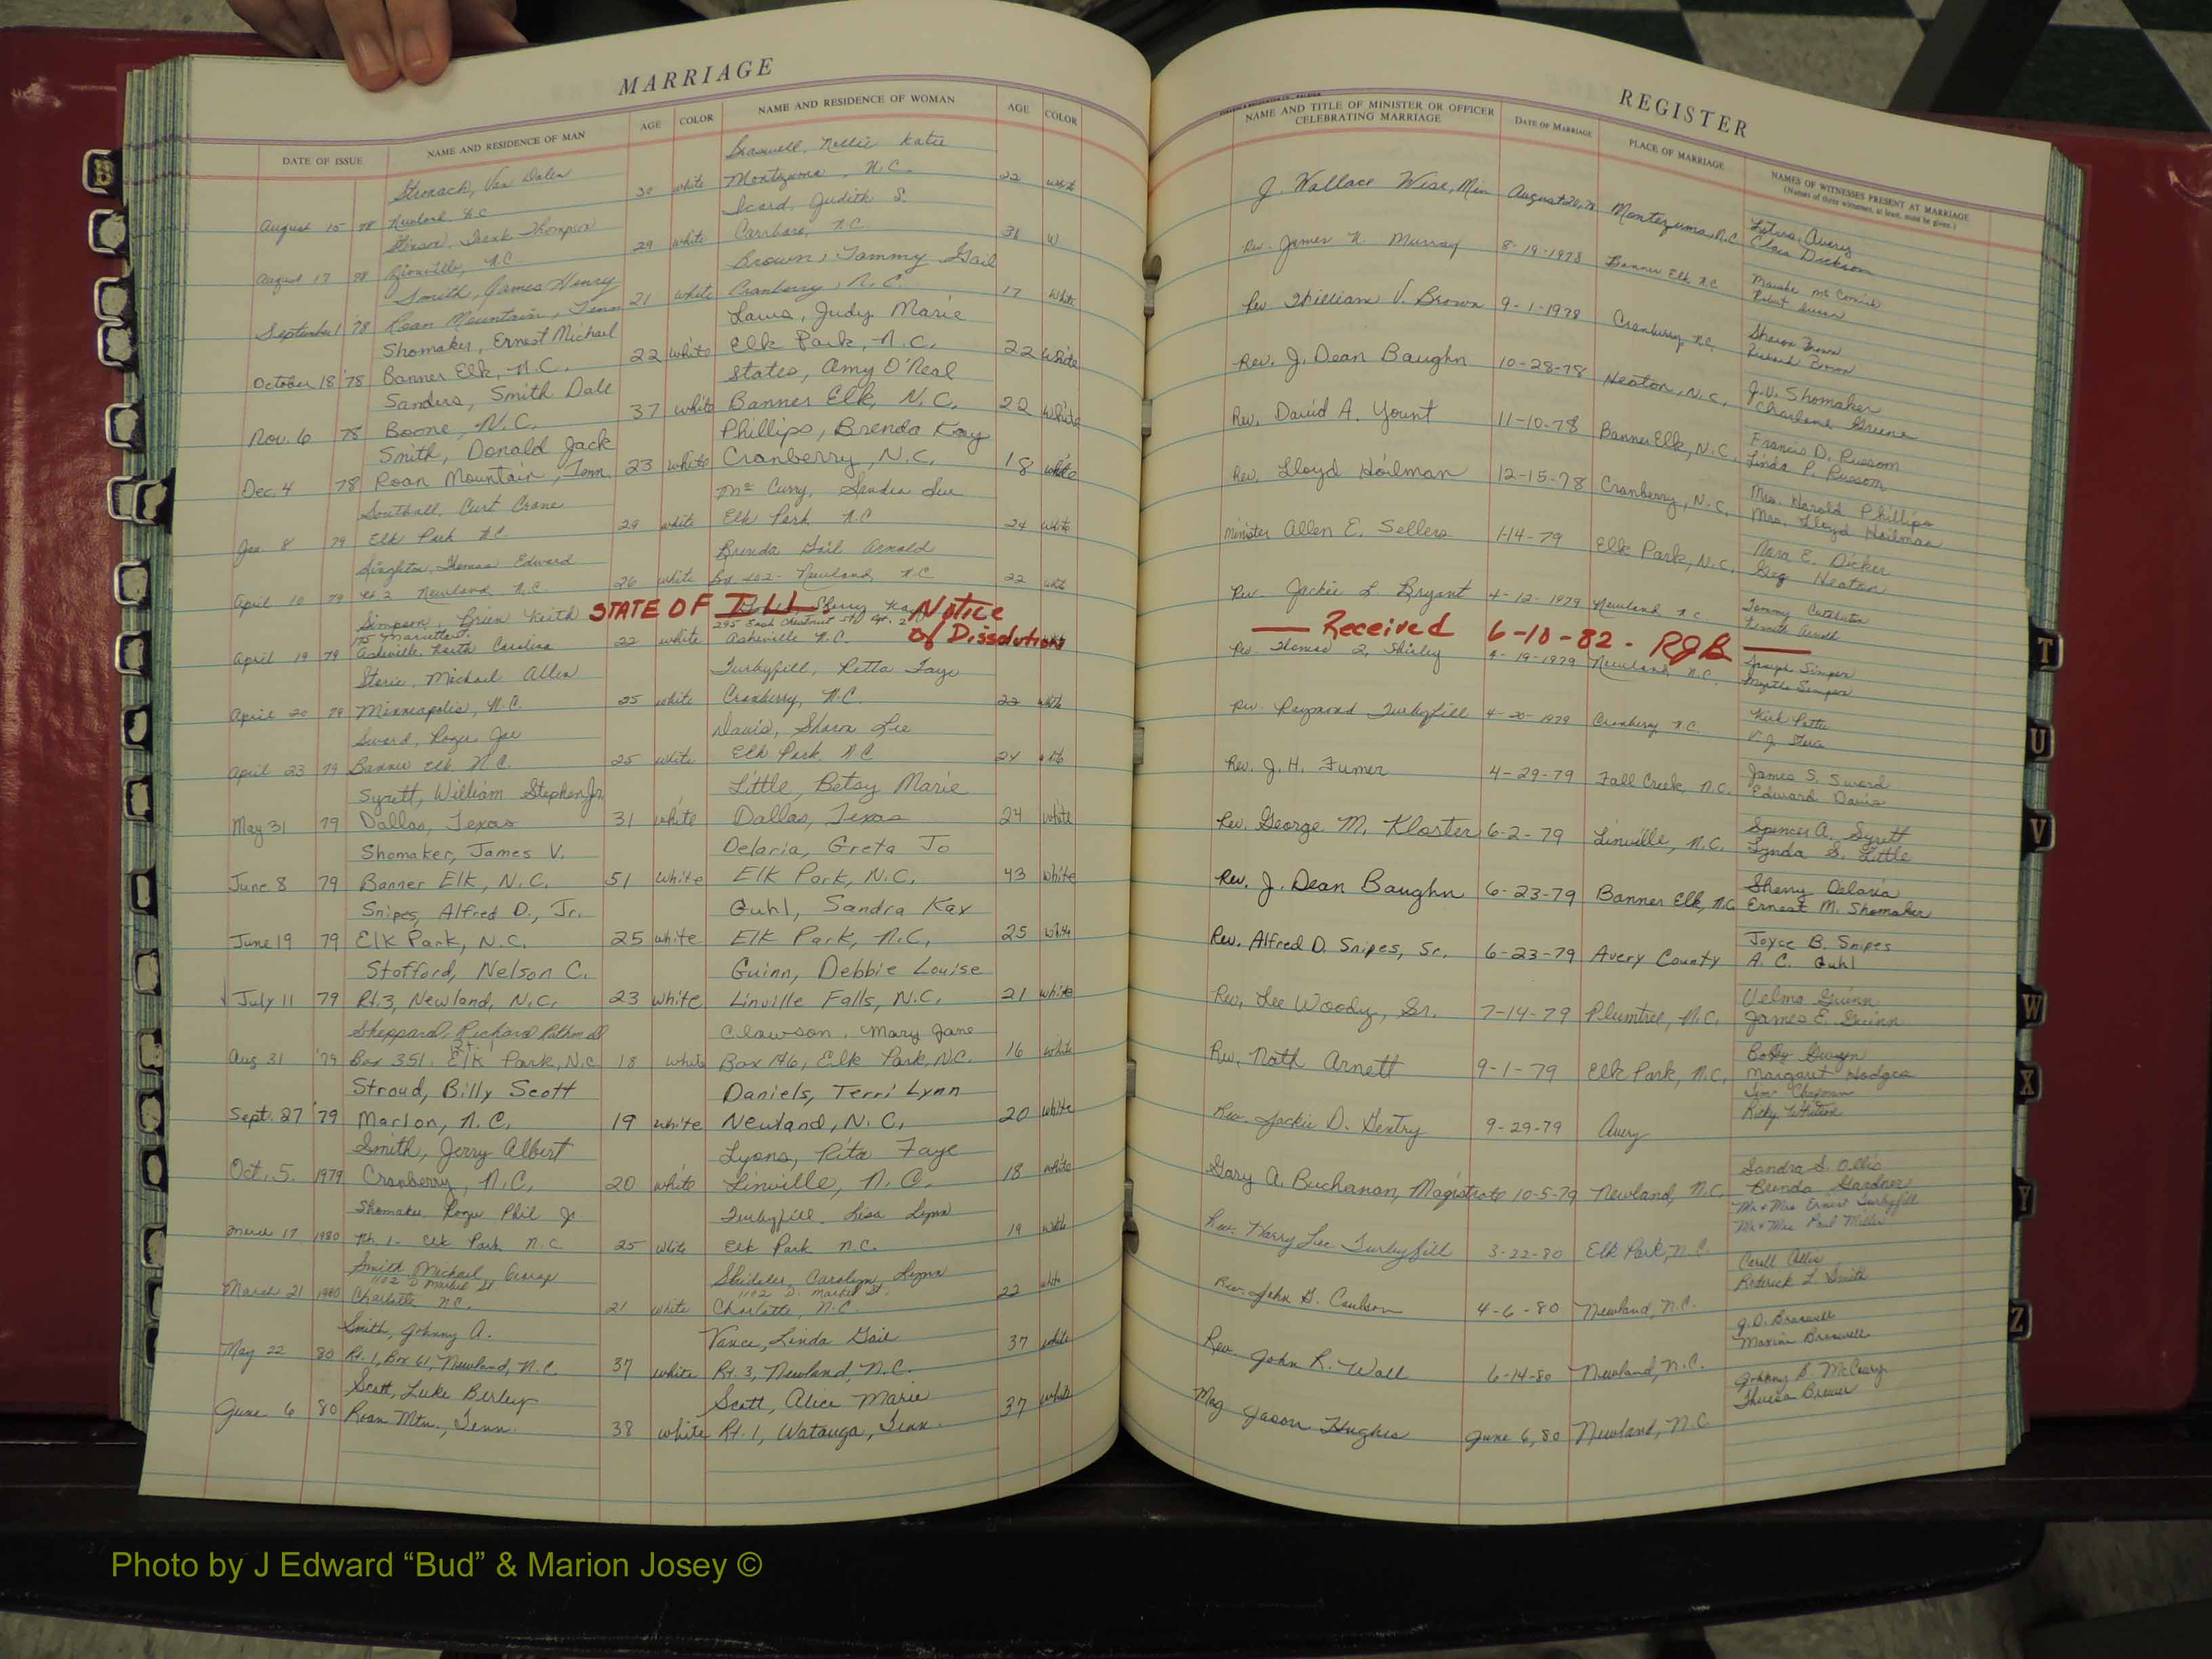 MARRIAGE
DATE OF ISSUE NAME AND RESIDENCE OF MAN AGE COLOR NAME AND RESIDENCE OF WOMAN AGE COLOR
Stronach, Van Dalen Braswell, Nellie Katie
August 15 78 Newland N.C. 30 white Montezuma, N.C. 22 white
Thompson Icard, Judith S.
August 17 78 N.C. 29 white Carrboro, N.C. 31 W
Smith, James Henry Brown, Tammy Gail
September 1 '78 Roan Mountain, Tenn 21 white Cranberry, N.C. 17 white
Shomaker, Ernest Michael Laws, Judy Marie
October 18 '78 Banner Elk, N.C. 22 white Elk Park, N.C. 22 white
Sanders, Smith Dale States, Amy O'Neal
Nov. 6 78 Boone, N.C. 37 white Banner Elk, N.C. 22 white
Smith, Donald Jack Phillips, Brenda Kay
Dec. 4 78 Roan Mountain, Tenn. 23 white Cranberry, N.C. 18 white
Southall, Curt Crane Mc Curry, Sandra Sue
Jan 8 79 Elk Park N.C. 29 white Elk Park N.C 24 white
Singleton, Thomas Edward Brenda Gail Arnold
April 10 79 Rt 2 Newland, N.C. 26 white Box 202 - Newland, N.C 22 white
Simpson, Brien Keith STATE OF ILL Sherry Notice
295 East Chestnut St of Dissolution
April 19 79 Asheville, North Carolina 22 white Asheville N.C.
Storie, Michael Allen Turbyfill, Retta Faye
April 20 79 Minneapolis, N.C. 25 white Cranberry, N.C. 22 white
Sword, Roger Joe Davis, Sharon Lee
April 23 79 Banner Elk N.C. 25 white Elk Park, N.C 24 white
Syrett, William Stephen Jr. Little, Betsy Marie
May 31 79 Dallas, Texas 31 white Dallas, Texas 24 white
Shomaker, James V. Delaria, Greta Jo
June 8 79 Banner Elk, N.C. 51 white Elk Park, N.C. 43 white
Snipes, Alfred D., Jr. Guhl, Sandra Kay
June 19 79 Elk Park, N.C. 25 white Elk Park, N.C. 25 white
Stofford, Nelson C. Guinn, Debbie Louise
July 11 79 Rt.3, Newland, N.C. 23 white Linville Falls, N.C. 21 white
Sheppard, Richard Clawson, Mary Jane
Aug 31 '79 Box 351, Elk Park, N.C. 18 white Box 146, Elk Park, N.C. 16 white
Stroud, Billy Scott Daniels, Terri Lynn
Sept. 27 '79 Marion, N.C. 19 white Newland, N.C. 20 white
Smith, Jerry Albert Lyons, Rita Faye
Oct. 5. 1979 Cranberry, N.C. 20 white Linville, N.C. 18 white
Shomaker, Roger Phil Jr Turbyfill, Lisa Lynn
March 17 1980 Rt. 1 - Elk Park N.C 25 white Elk Park N.C. 19 white
Smith Michael George Carolyn Lynn
1102 D Market St. 1102 D. Market St.
March 21 1980 Charlotte N.C. 21 white Charlotte, N.C. 22 white
Smith, Johnny A. Vance, Linda Gail
May 22 80 Rt. 1, Box 61, Newland, N.C. 37 white Rt. 3, Newland, N.C. 37 white
Scott, Luke Berley Scott, Alice Marie
June 6 80 Roan Mtn., Tenn. 38 white Rt. 1, Watauga, Tenn. 37 white
REGISTER
NAME AND TITLE OF MINISTER OR OFFICER CELEBRATING MARRIAGE DATE OF MARRIAGE PLACE OF MARRIAGE NAMES OF WITNESSES PRESENT AT MARRIAGE
(Names of three witnesses, at least, must be given.)
J. Wallace Wise, Min August 20, 78 Montezuma, N.C. Avery
Clara Dickson
Rev. James N. Murray 8-19-1978 Banner Elk N.C.
Rev William V. Brown 9-1-1978 Cranberry N.C. Sharon Brown
Richard Brown
Rev. J. Dean Baughn 10-28-78 Heaton, N.C. J.V. Shomaker
Charlene Greene
Rev. David A. Yount 11-10-78 Banner Elk, N.C. Francis D. Russom
Linda P. Russom
Rev. Lloyd Hoilman 12-15-78 Cranberry, N.C. Mrs. Harold Phillips
Mrs. Lloyd Hoilman
minister Allen E. Sellers 1-14-79 Elk Park, N.C. Nora E. Dicker
Greg Heaton
Rev. Jackie L Bryant 4-12-1979 Newland N.C Tommy
Arnold
Received 6-10-82 - RGB
Rev Thomas Q. Shirley 4-19-1979 Newland, N.C. Joseph Simpson
Myrtle Simpson
Rev. Raymond Turbyfill 4-20-1979 Cranberry N.C. Kirk
V.J. Storie
Rev. J.H. Turner 4-29-79 Fall Creek, N.C. James S. Sword
Edward Davis
Rev. George M. Kloster 6-2-79 Linville, N.C. Spencer A. Syrett
Lynda S. Little
Rev. J. Dean Baughn 6-23-79 Banner Elk, N.C. Sherry Delaria
Ernest M. Shomaker
Rev. Alfred D. Snipes, Sr. 6-23-79 Avery County Joyce B. Snipes
A. C. Guhl
Rev. Lee Woody, Sr. 7-14-79 Plumtree, N.C. Velma Guinn
James E. Guinn
Rev. Nath Arnett 9-1-79 Elk Park, N.C. Gwyn
Margaret Hodges
Rev. Jackie D. Gentry 9-29-79 Avery Jim Chapman
Ricky
Gary A. Buchanan, Magistrate 10-5-79 Newland, N.C. Sandra S. Ollis
Brenda Gardner
Rev. Harry Lee Turbyfill 3-22-80 Elk Park, N.C. Mr & Mrs Ernest Turbyfill
Mr & Mrs Paul Miller
Rev. John G. Coulson 4-6-80 Newland, N.C. Ollis
Roderick L Smith
Rev. John R. Wall 6-14-80 Newland, N.C. J.D. Braswell
Maxine Braswell
Mag Jason Hughes June 6, 80 Newland, N.C. Johnny B. McCleary
Theresa Brewer
T
U
V
W
X
Y
Z
Photo by J Edward “Bud” & Marion Josey ©